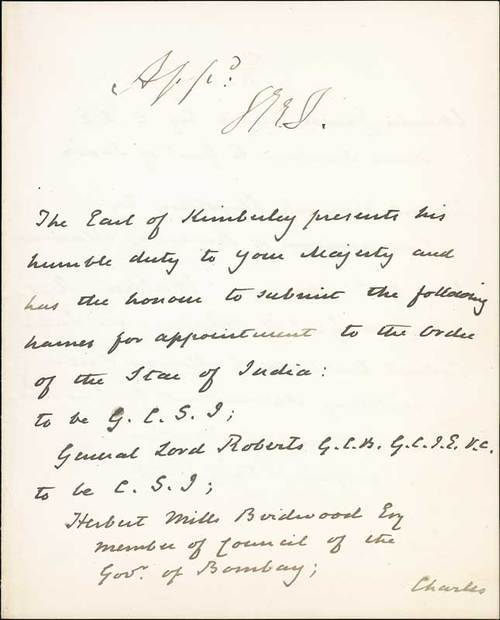 App^d.
V.R.I.
The Earl of Kimberley presents his
humble duty to your Majesty and
has the honour to submit the following
names for appointment to the Order
of the Star of India:
to be G. C. S. I;
General Lord Roberts G.C.B. G.C.I.E. V.C.
to be C. S. I;
Herbert Mills Birdwood Esq
member of Council of the
Gov^r. of Bombay;
Charles